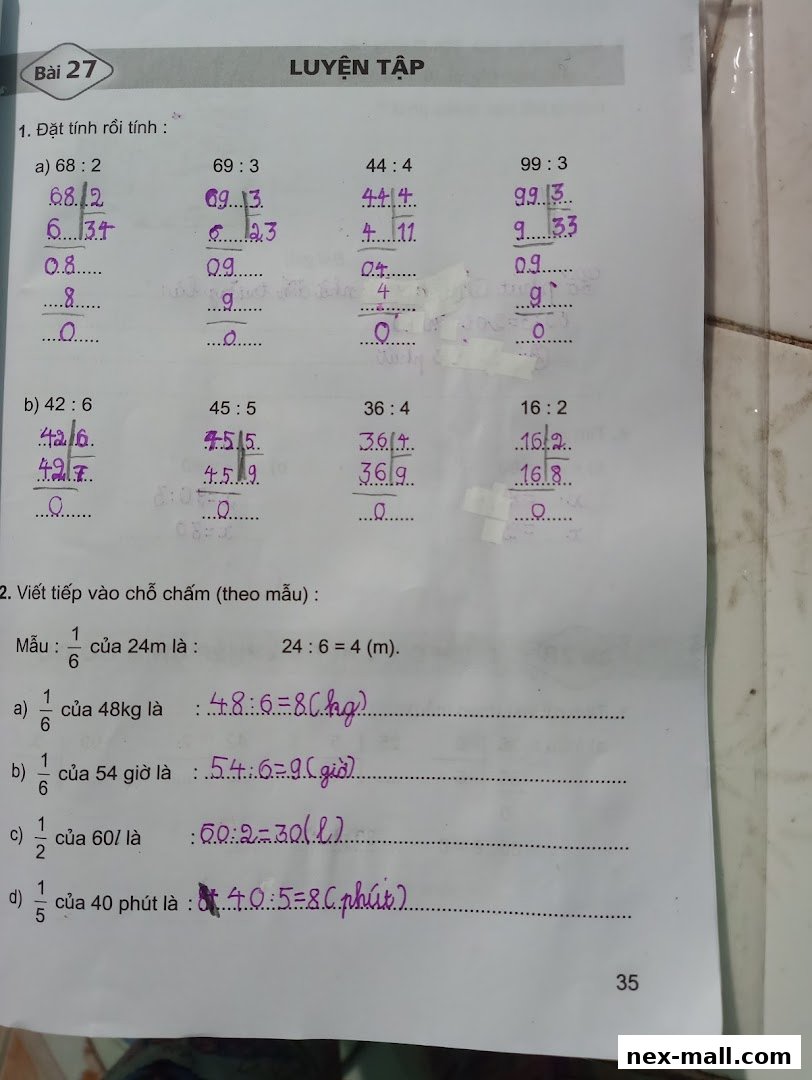 Bài 27
LUYỆN TẬP
1. Đặt tính rồi tính :
a) 68 : 2 69 : 3 44 : 4 99 : 3
68 2 69 3 44 4 99 3
6 34 6 23 4 11 9 33
08 09 04 09
8 9 4 9
0 0 0 0
b) 42 : 6 45 : 5 36 : 4 16 : 2
42 6 45 5 36 4 16 2
42 7 45 9 36 9 16 8
0 0 0 0
2. Viết tiếp vào chỗ chấm (theo mẫu) :
Mẫu : 1/6 của 24m là : 24 : 6 = 4 (m).
a) 1/6 của 48kg là : 48:6=8(kg)
b) 1/6 của 54 giờ là : 54:6=9(giờ)
c) 1/2 của 60l là : 60:2=30(l)
d) 1/5 của 40 phút là : 40:5=8(phút)
35
nex-mall.com